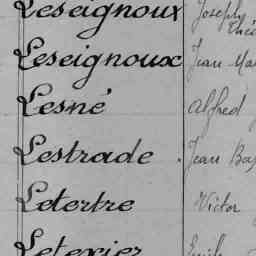 Leseignoux Joseph
Leseignoux Jean
Lesné Alfred
Lestrade Jean
Letertre Victor
Letexier Emile